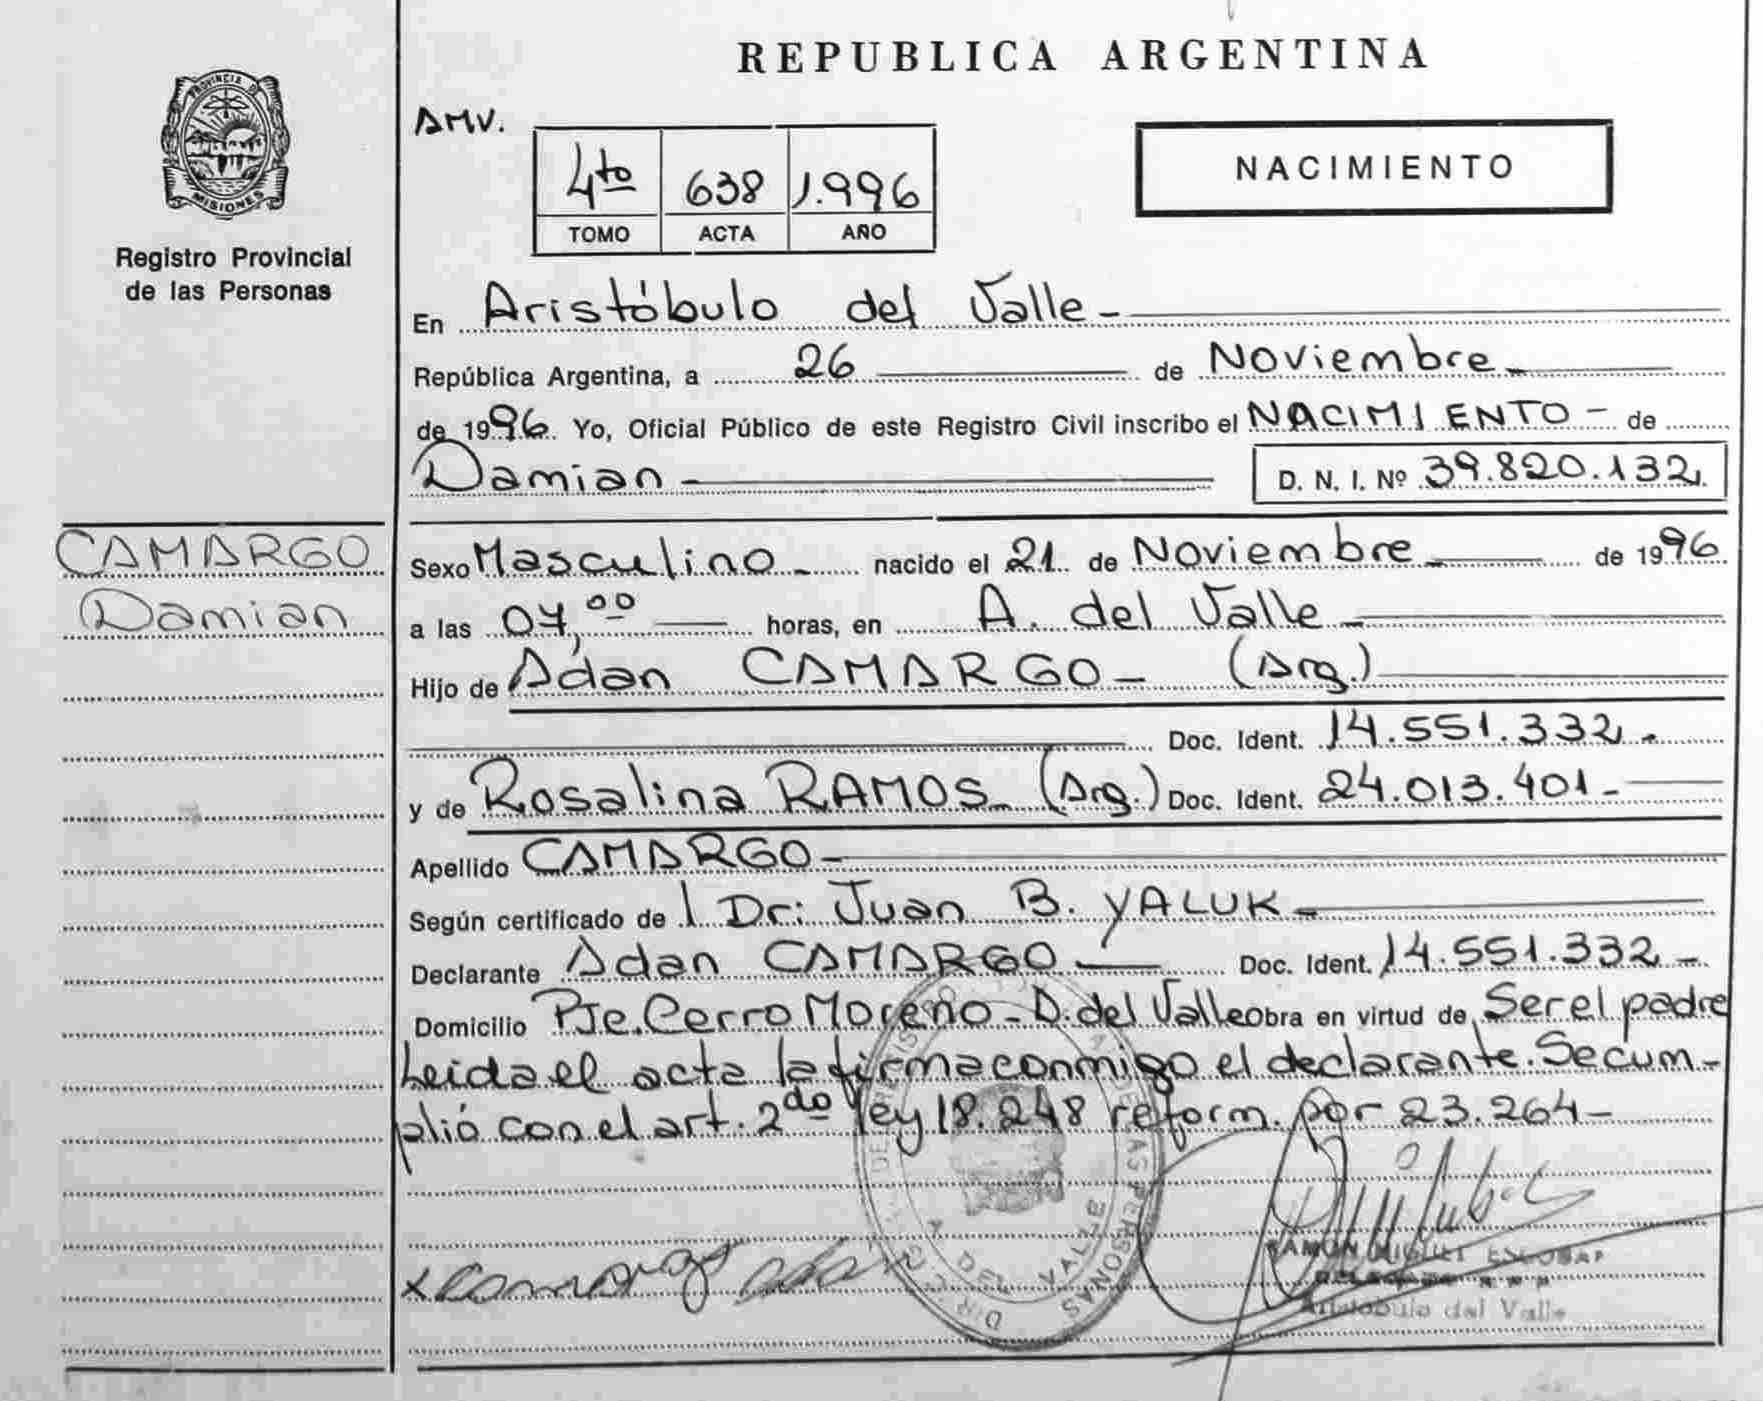 REPUBLICA ARGENTINA
PROVINCIA DE
MISIONES
Registro Provincial
de las Personas
AMV.
4to 638 1.996
TOMO ACTA AÑO
NACIMIENTO
En Aristóbulo del Valle-
República Argentina, a 26 de Noviembre-
de 1996. Yo, Oficial Público de este Registro Civil inscribo el NACIMIENTO- de
Damian- D. N. I. Nº 39.820.132.
CAMARGO
Damian
Sexo Masculino- nacido el 21 de Noviembre- de 1996
a las 07,00 horas, en A. del Valle-
Hijo de Adan CAMARGO- (Arg.)
Doc. Ident. 14.551.332.-
y de Rosalina RAMOS- (Arg.) Doc. Ident. 24.013.401-
Apellido CAMARGO-
Según certificado de l Dr: Juan B. YALUK-
Declarante Adan CAMARGO- Doc. Ident. 14.551.332-
Domicilio Pje. Cerro Moreno-A. del Valle Obra en virtud de Ser el padre
Leida el acta la firma conmigo el declarante. Se cum-
plió con el art. 2do ley 18.248 reform. por 23.264-
x Camargo adan
DE LAS PERSONAS
A. DEL VALLE
RAMON MIGUEL ESCOBAR
Aristóbulo del Valle